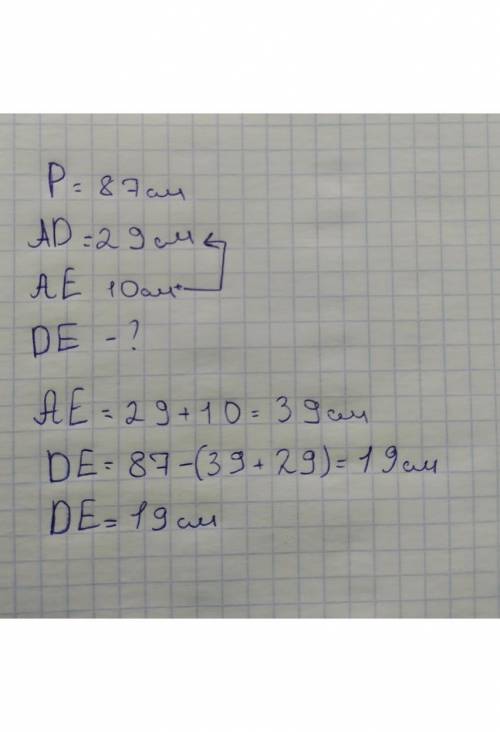 P = 87см
AD = 29см
AE 10см+
DE - ?
AE = 29 + 10 = 39см
DE = 87 - (39 + 29) = 19см
DE = 19см